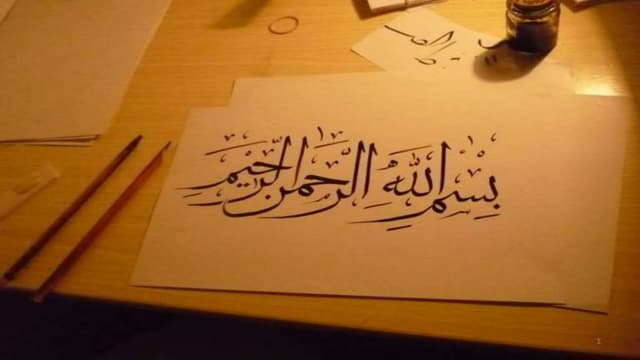 بِسْمِ اللَّهِ الرَّحْمنِ الرَّحِيْمِ
1